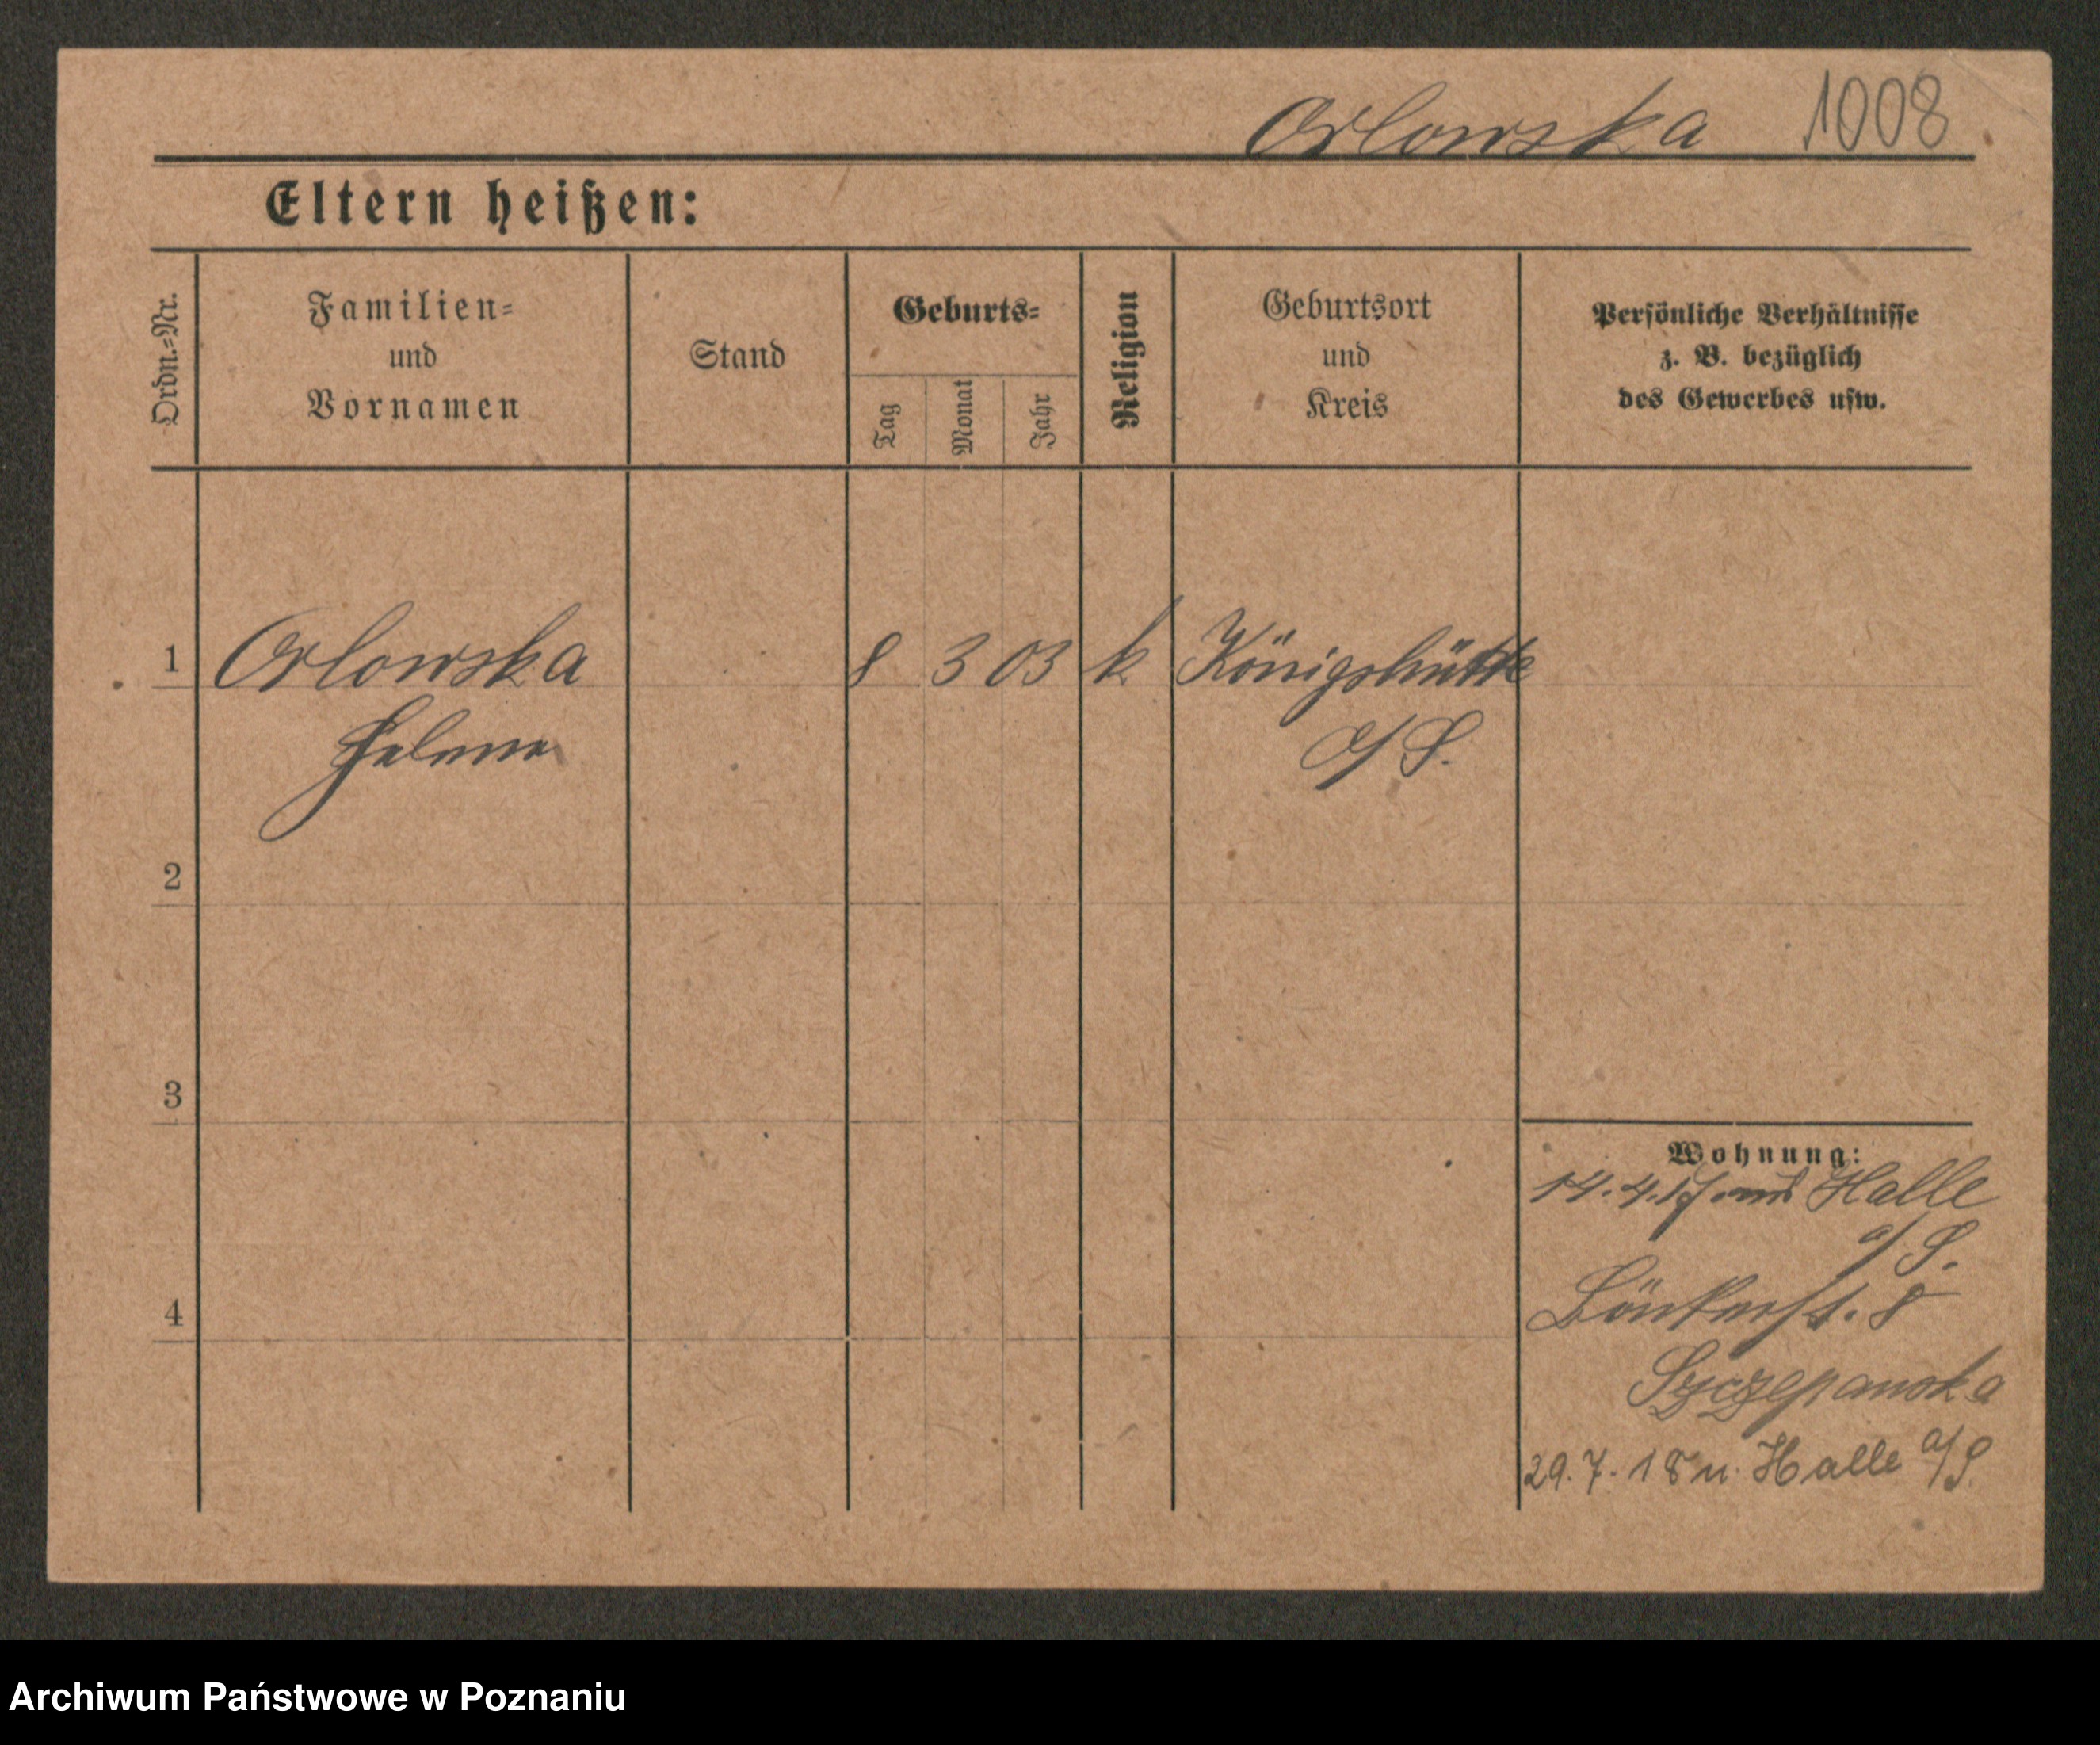 Orlowska 1008
Eltern heißen:
Ordn.=Nr.
Familien=
und
Vornamen
Stand
Geburts=
Tag
Monat
Jahr
Religion
Geburtsort
und
Kreis
Persönliche Verhältnisse
z. B. bezüglich
des Gewerbes usw.
1 Orlowska 8 3 03 k Königshütte
Helene O/S.
2
3
4
Wohnung:
14.4.17 aus Halle
a/S.
8
Szczepanska
29.7.18 n. Halle a/S
Archiwum Państwowe w Poznaniu